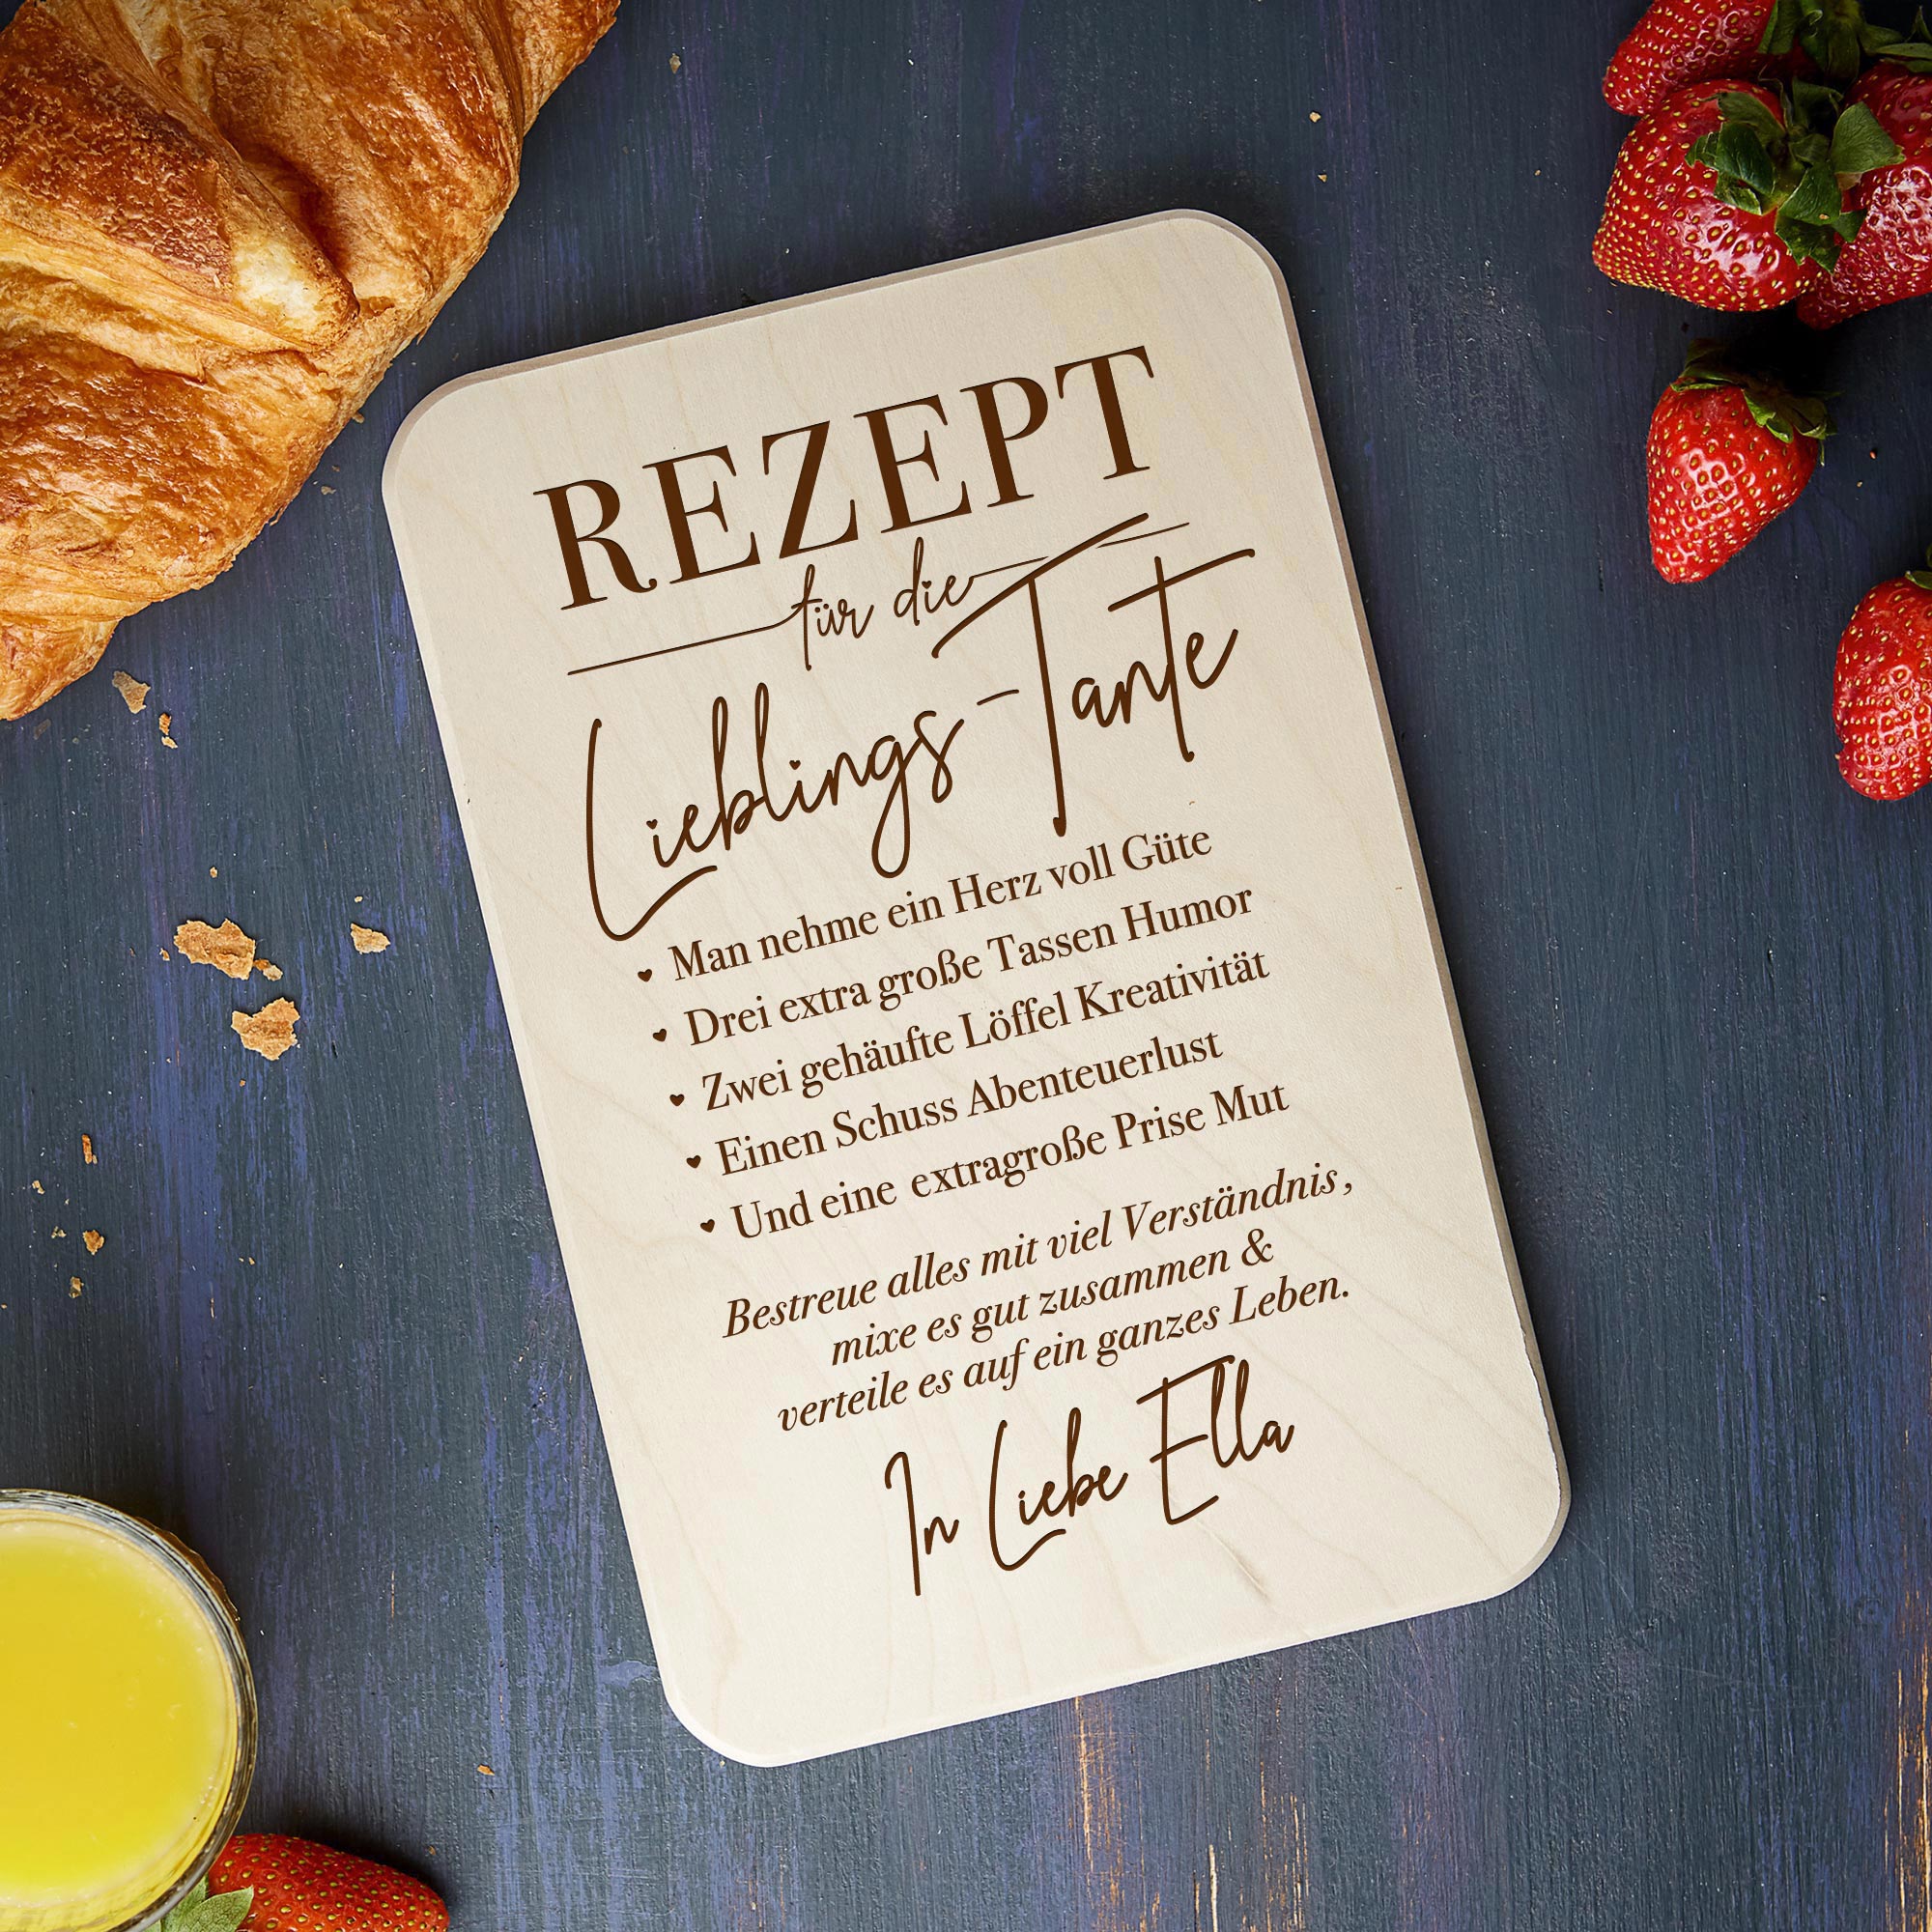 REZEPT
für die
Lieblings-Tante
Man nehme ein Herz voll Güte
Drei extra große Tassen Humor
Zwei gehäufte Löffel Kreativität
Einen Schuss Abenteuerlust
Und eine extragroße Prise Mut
Bestreue alles mit viel Verständnis,
mixe es gut zusammen &
verteile es auf ein ganzes Leben.
In Liebe Ella